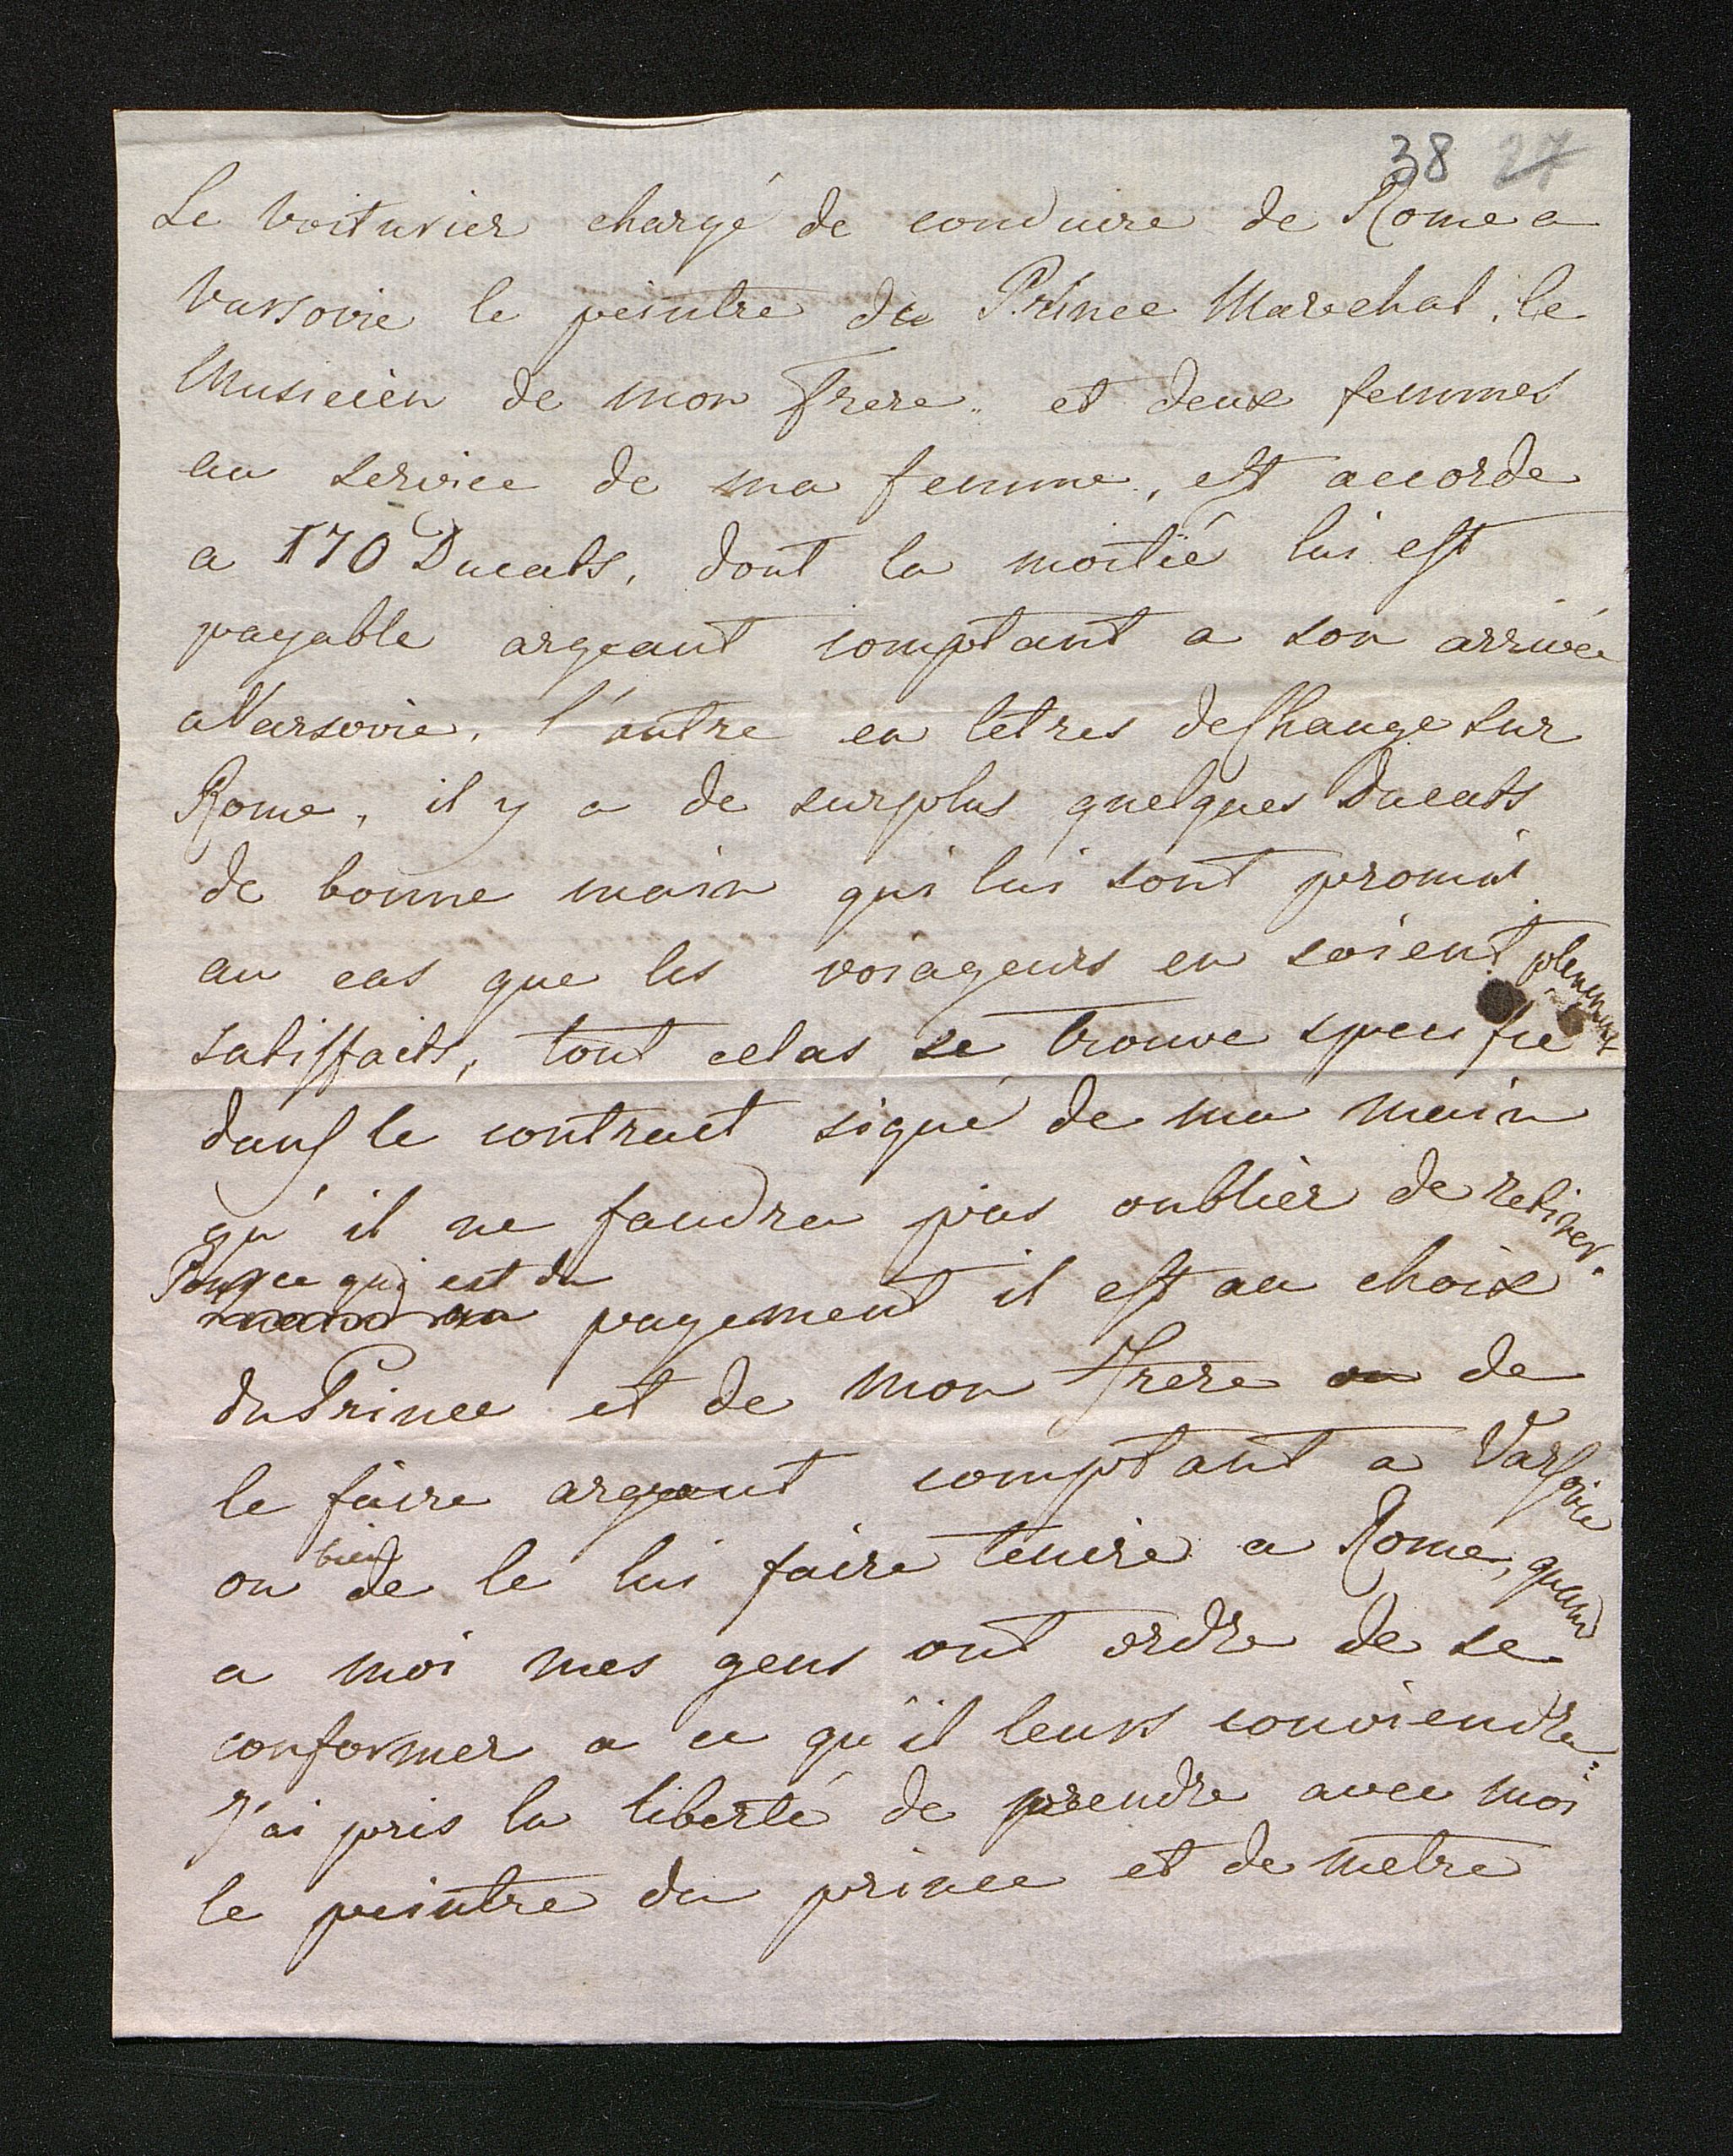 38 27
Le voiturier chargé de conduire de Rome a
Varsovie le peintre du Prince Marechal, le
Musicien de mon Frere et deux femmes
au service de ma femme, est accorde
a 170 Ducats, dont la moitié lui est
payable argeant comptant a son arrivée
a Varsovie, l'autre en letres de Change sur
Rome, il y a de surplus quelques Ducats
de bonne main qui lui sont promis
au cas que les voiageurs en soient plenement
satisfaits, tout celas se trouve specifie
dans le contract signé de ma main
qu'il ne faudra pas oublier de retirer.
Pour ce qui est du
payement il est au choix
du Prince et de mon Frere ou de
le faire argeant comptant a Varsovie
ou bien de le lui faire tenire a Rome, quand
a moi mes gens ont ordre de se
conformer a ce qu'il leurs conviendra.
J'ai pris la liberté de prendre avec moi
le peintre du prince et de metre